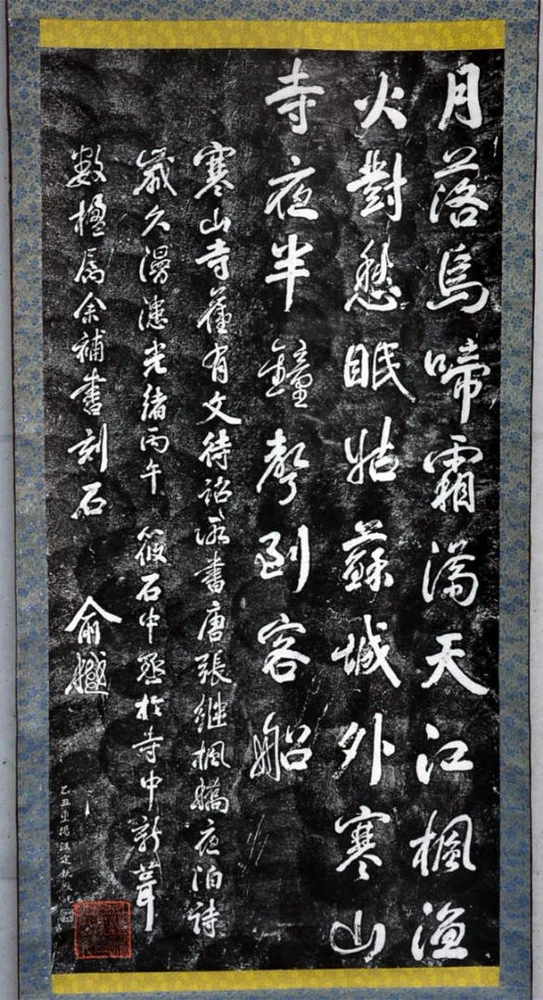 月落烏啼霜滿天江楓漁
火對愁眠姑蘇城外寒山
寺夜半鐘聲到客船
寒山寺舊有文待詔所書唐張繼楓橋夜泊詩
歲久漫漶光緒丙午筱石中丞於寺中新葺
數楹屬余補書刻石
俞樾
乙丑重揭